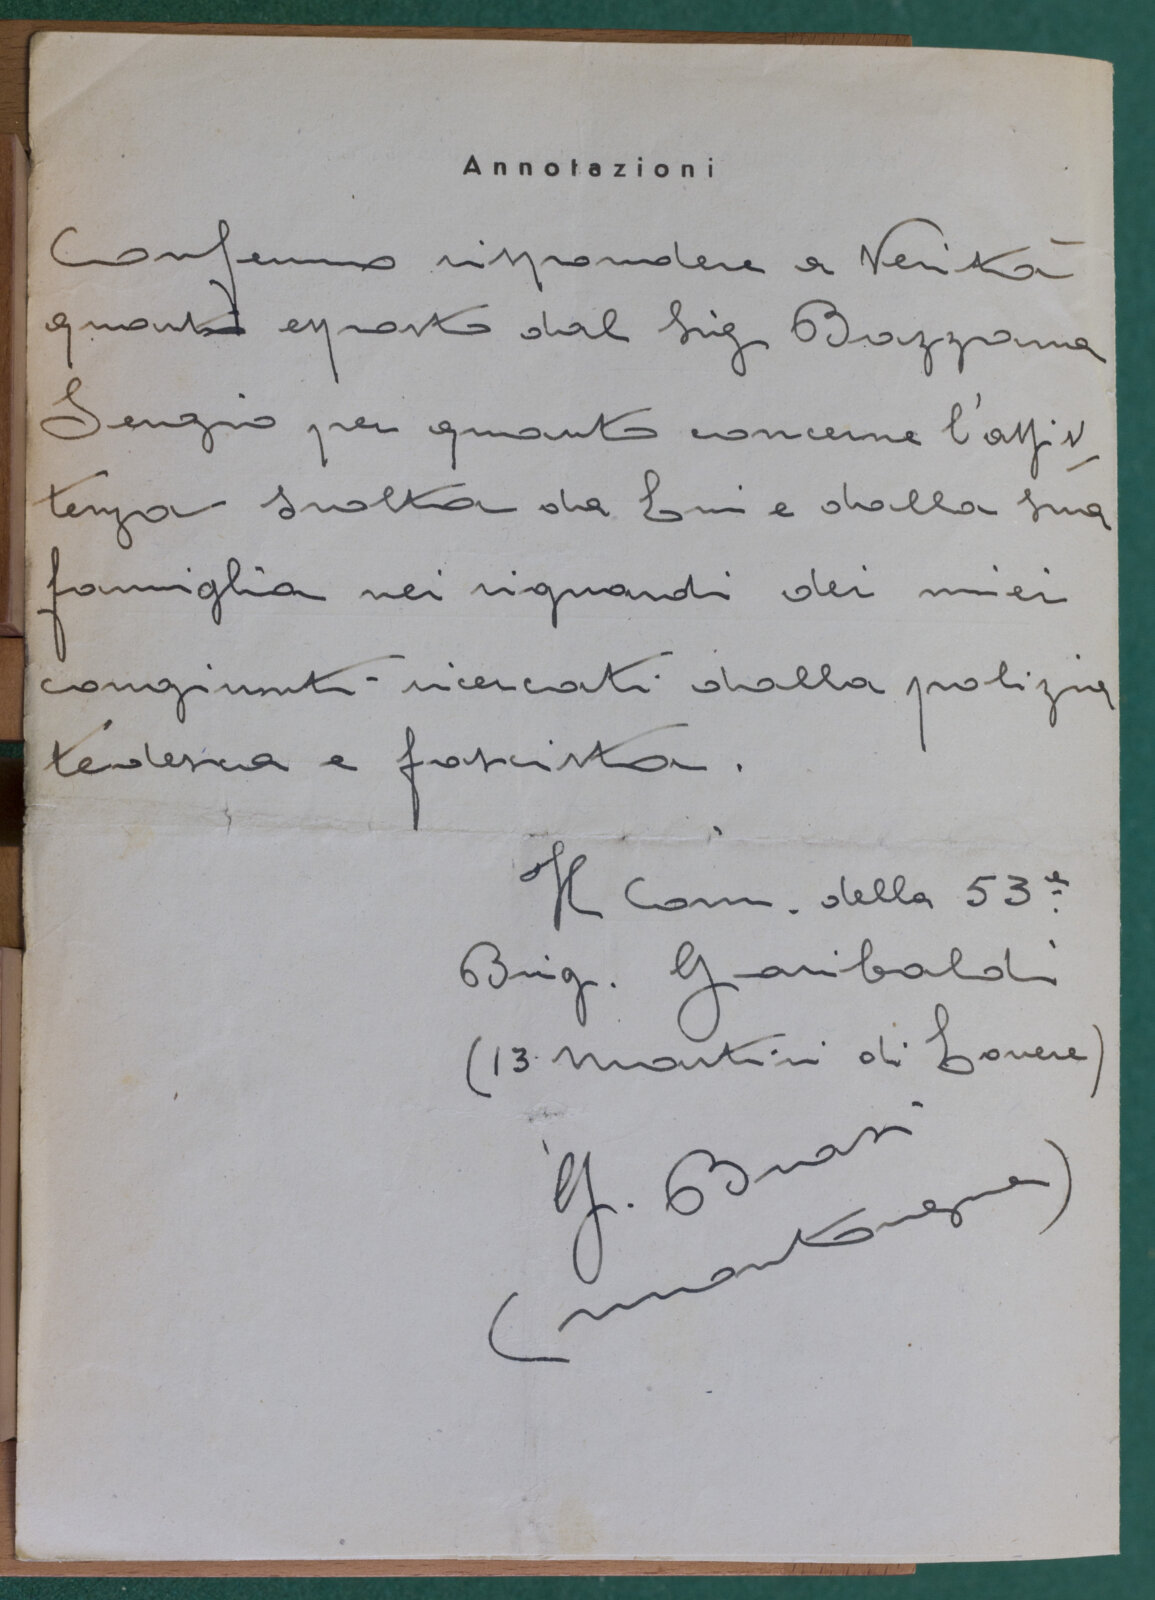 Annotazioni
Confermo rispondere a Verità
quanto esposto dal Sig Bazzana
Sergio per quanto concerne l'assis
tenza svolta da Lui e dalla sua
famiglia nei riguardi dei miei
congiunti ricercati dalla polizia
tedesca e fascista.
Il Com. della 53ª
Brig. Garibaldi
(13 martiri di Lovere)
G. Brasi
(montagna)